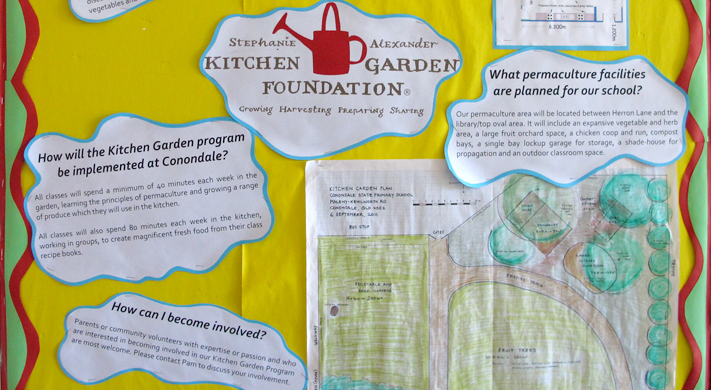 vegetables and
6.200m
1.200m
Stephanie Alexander
KITCHEN GARDEN
FOUNDATION®
Growing Harvesting Preparing Sharing
What permaculture facilities
are planned for our school?
Our permaculture area will be located between Herron Lane and the
library/top oval area. It will include an expansive vegetable and herb
area, a large fruit orchard space, a chicken coop and run, compost
bays, a single bay lockup garage for storage, a shade-house for
propagation and an outdoor classroom space.
How will the Kitchen Garden program
be implemented at Conondale?
All classes will spend a minimum of 40 minutes each week in the
garden, learning the principles of permaculture and growing a range
of produce which they will use in the kitchen.
All classes will also spend 80 minutes each week in the kitchen,
working in groups, to create magnificent fresh food from their class
recipe books.
How can I become involved?
Parents or community volunteers with expertise or passion and who
are interested in becoming involved in our Kitchen Garden Program
are most welcome. Please contact Pam to discuss your involvement.
KITCHEN GARDEN PLAN
CONONDALE STATE PRIMARY SCHOOL
MALENY-KENILWORTH RD
CONONDALE, QLD 4552
BUS STOP
GATE
FRUIT TREES